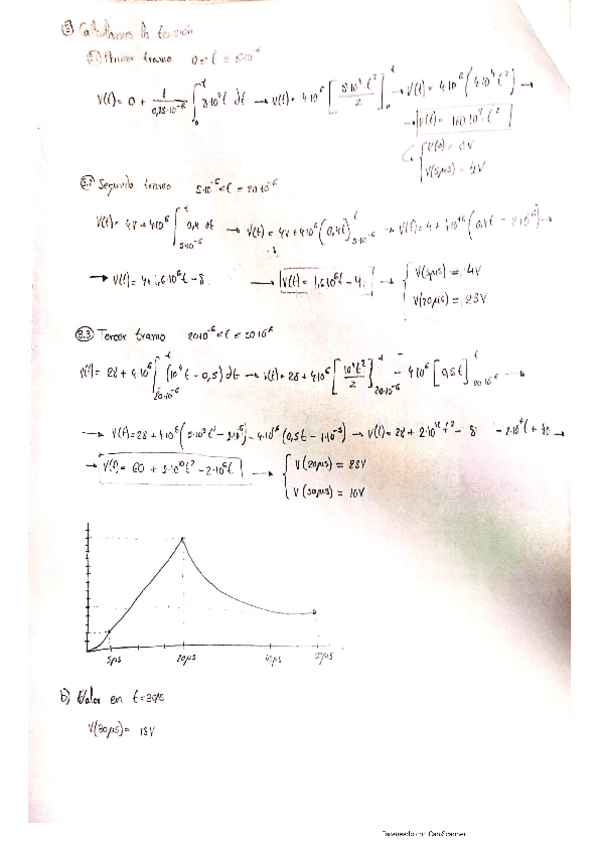 ③ Calculamos la tensión
Primer tramo 0 ≤ t ≤ 5·10⁻⁶
V(t) = 0 + 1/(0,25·10⁻⁶) ∫₀ᵗ 8·10⁴t dt → V(t) = 4·10⁶ [8·10⁴t²/2]₀ᵗ → V(t) = 4·10⁶ (4·10⁴t²) →
→ V(t) = 160·10⁹·t²
V(0) = 0V
V(5μs) = 4V
3.2 Segundo tramo 5·10⁻⁶ < t ≤ 20·10⁻⁶
V(t) = 4V + 4·10⁶ ∫ 0,4 dt → V(t) = 4V + 4·10⁶ (0,4t) → V(t) = 4 + (0,4t - 2·10⁻⁶) →
→ V(t) = 4 + 1,6·10⁶t - 8 → V(t) = 1,6·10⁶t - 4 → V(5μs) = 4V
V(20μs) = 28V
3.3 Tercer tramo 20·10⁻⁶ < t ≤ 50·10⁻⁶
V(t) = 28 + 4·10⁶ ∫ (10⁴t - 0,5) dt → V(t) = 28 + 4·10⁶ [10⁴t²/2] - 4·10⁶ [0,5t] →
→ V(t) = 28 + 4·10⁶ (5·10³t² - 2·10⁻⁶) - 4·10⁶ (0,5t - 1·10⁻⁵) → V(t) = 28 + 2·10¹⁰t² - 8 - 2·10⁶t + 40 →
→ V(t) = 60 + 2·10¹⁰t² - 2·10⁶t → V(20μs) = 28V
V(50μs) = 10V
5μs 20μs
b) Valor en t=30μs
V(30μs) = 18V